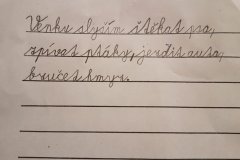 Venku slyším štěkat psa,
zpívat ptáky, jezdit auta,
bručet hmyz.